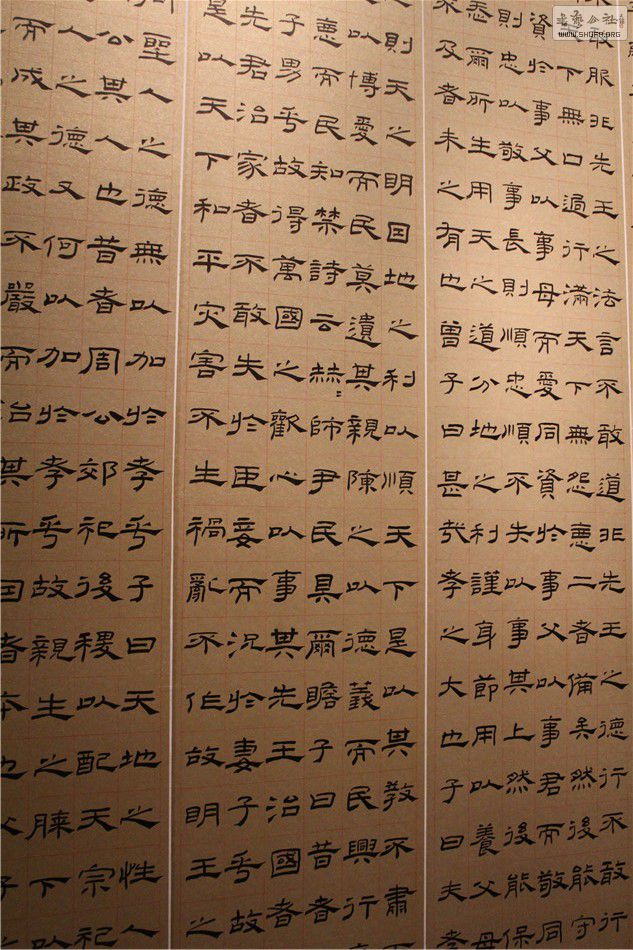 敢服非先王之法言不敢道非先王之德行不敢行
下無口過行滿天下無怨惡二者備矣然後能守
資於事父以事母而愛同資於事父以事君而敬同
則忠以敬事長則順忠順不失以事其上然後能保
忝爾所生用天之道分地之利謹身節用以養父母
及者未之有也曾子曰甚哉孝之大也子曰夫
則天之明因地之利以順天下是以其教不肅
以博愛而民莫遺其親陳之以德義而民興行
惡而民知禁詩云赫〻師尹民具爾瞻子曰昔者
子男乎故得萬國之歡心以事其先王治國者
先君治家者不敢失於臣妾而況於妻子乎故
是以天下和平灾害不生禍亂不作故明王之
聖人之德無以加於孝乎子曰天地之性人
公其人也昔者周公郊祀後稷以配天宗祀
人之德又何以加於孝乎故親生之膝下
而成其政不嚴而治其所因者本也父子
WWW.SHUFA.ORG